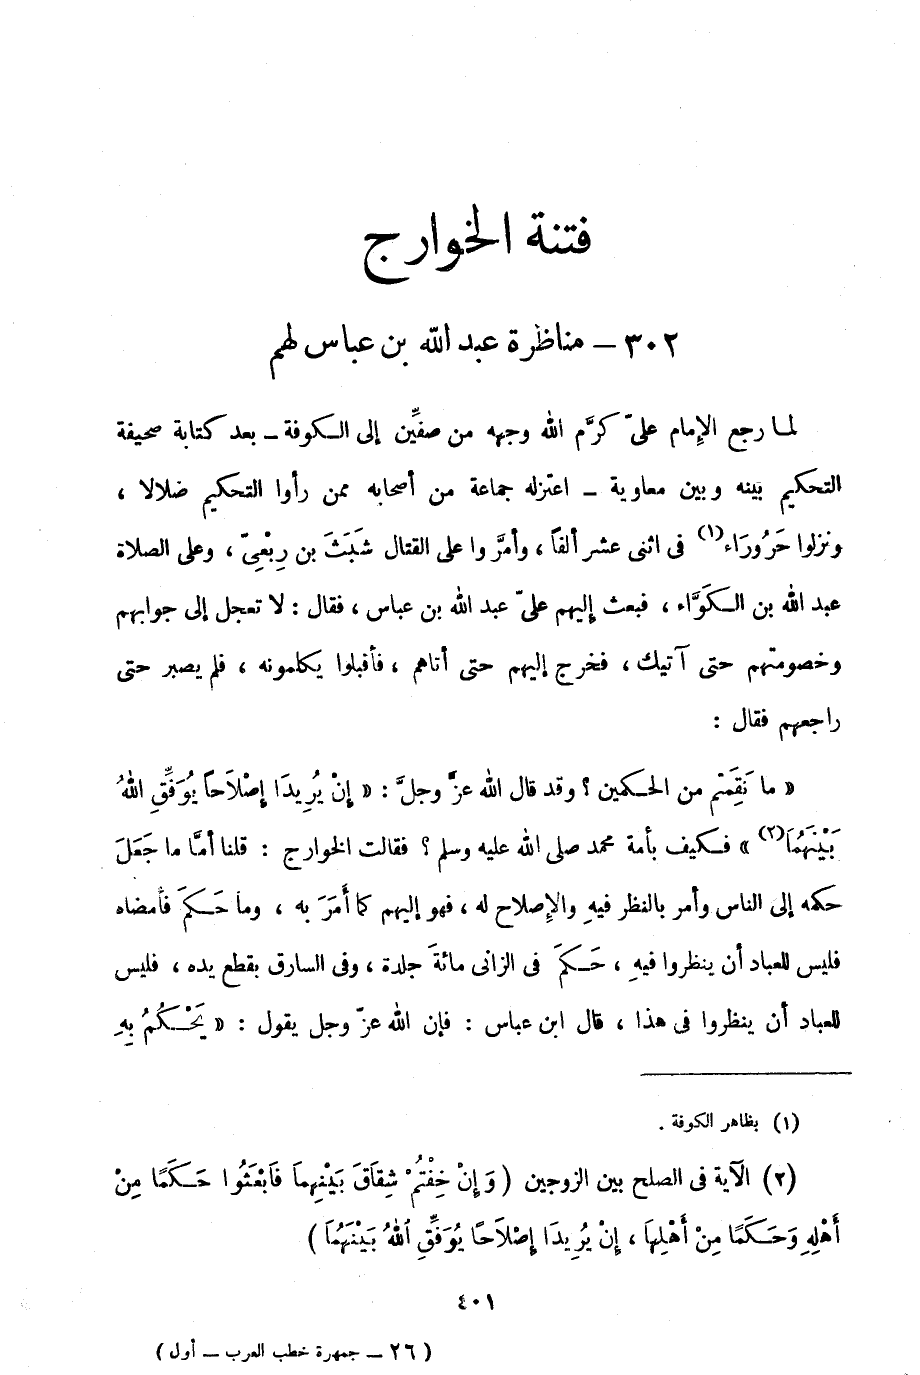 فتنة الخوارج
٣٠٢ – مناظرة عبد الله بن عباس لهم
لما رجع الإمام علىّ كرَّم الله وجهه من صفِّين إلى الكوفة – بعد كتابة صحيفة
التحكيم بينه وبين معاوية – اعتزله جماعة من أصحابه ممن رأوا التحكيم ضلالا ،
ونزلوا حَرُورَاء(١) فى اثنى عشر ألفاً ، وأمَّروا على القتال شَبَثَ بن رِبْعِىّ ، وعلى الصلاة
عبد الله بن الكَوَّاء ، فبعث إليهم علىّ عبد الله بن عباس ، فقال : لا تعجل إلى جوابهم
وخصومتهم حتى آتيك ، فخرج إليهم حتى أتاهم ، فأقبلوا يكلمونه ، فلم يصبر حتى
راجعهم فقال :
« ما نَقِمَتْم من الحكمين ؟ وقد قال الله عزَّ وجلَّ : « إِنْ يُرِيدَا إِصْلَاحاً يُوَفِّقِ اللهُ
بَيْنَهُمَا(٢) » فكيف بأمة محمد صلى الله عليه وسلم ؟ فقالت الخوارج : قلنا أمَّا ما جَعَلَ
حكمه إلى الناس وأمر بالنظر فيهِ والإصلاح له ، فهو إليهم كما أَمَرَ به ، وما حَكَمَ فأمضاه
فليس للعباد أن ينظروا فيهِ ، حَكَمَ فى الزانى مائةَ جلدة ، وفى السارق بقطع يده ، فليس
للعباد أن ينظروا فى هذا ، قال ابن عباس : فإن الله عزّ وجل يقول : « يَحْكُمُ بِهِ
(١) بظاهر الكوفة .
(٢) الآية فى الصلح بين الزوجين ( وَإِنْ خِفْتُمْ شِقَاقَ بَيْنِهِمَا فَابْعَثُوا حَكَمًا مِنْ
أَهْلِهِ وَحَكَمًا مِنْ أَهْلِهَا ، إِنْ يُرِيدَا إِصْلَاحًا يُوَفِّقِ اللهُ بَيْنَهُمَا )
٤٠١
( ٢٦ – جمهرة خطب العرب – أول )